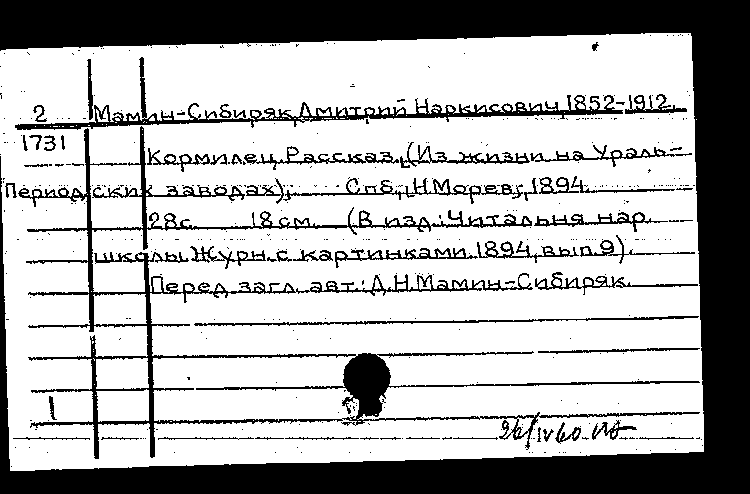 2 Мамин-Сибиряк, Дмитрий Наркисович, 1852-1912.
1731
Кормилец. Рассказ. (Из жизни на Ураль-
Период ских заводах). Спб., Н. Морев, 1894.
28с. 18см. (В изд.: Читальня нар.
школы. Журн. с картинками. 1894, вып. 9).
Перед загл. авт.: Д.Н. Мамин-Сибиряк.
1
26/IV60